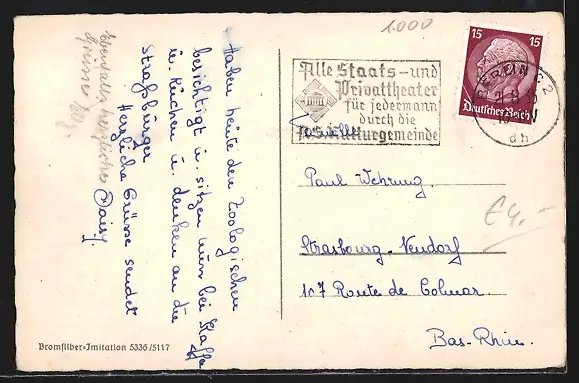 1.000
Haben heute den Zoologischen
besichtigt u. sitzen nun bei Kaffee
u. Kuchen u. denken an die
Straßburger
Herzliche Grüsse sendet
Daisy.
Ebenfalls herzliche
Grüsse
Alle Staats- und
Privattheater
für jedermann
durch die
N.S. Kulturgemeinde
15 15
Deutsches Reich
BERLIN C 2
dh
Familie
Paul Wehrung.
€ 4,-
Strasbourg-Neudorf
107 Route de Colmar
Bas-Rhin.
Bromsilber-Imitation 5336/5117